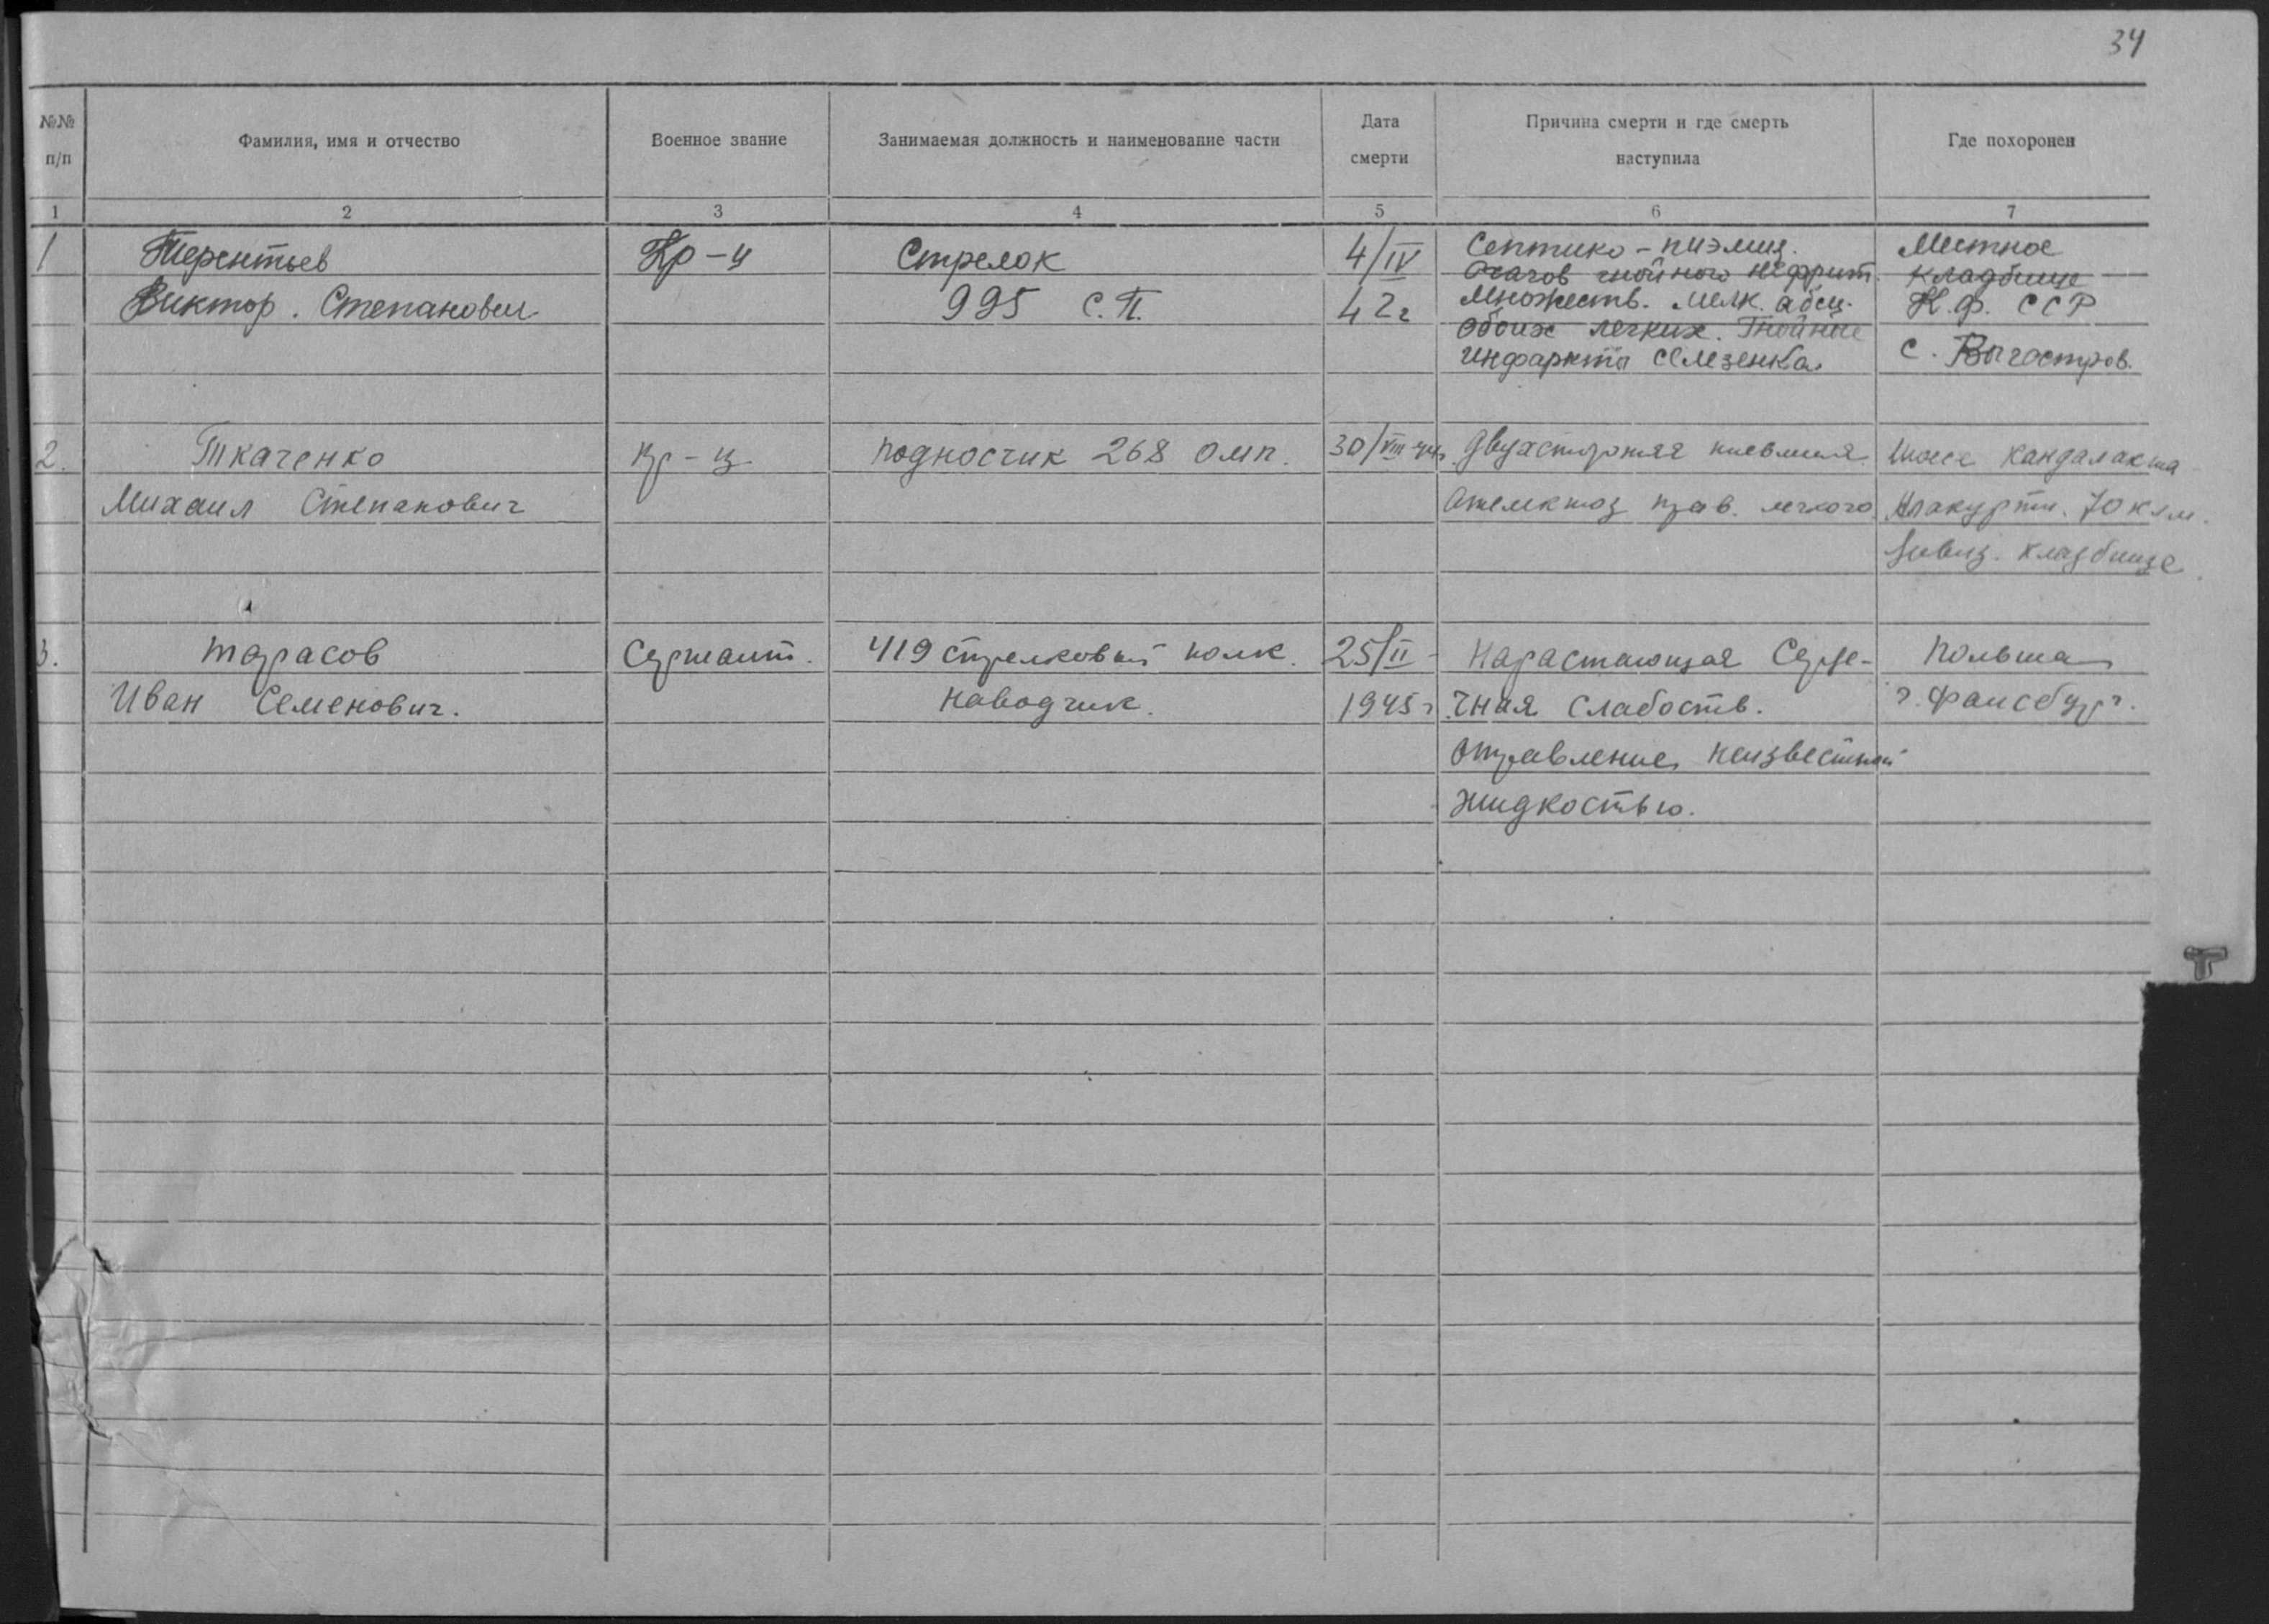 34
№№ п/п
Фамилия, имя и отчество
Военное звание
Занимаемая должность и наименование части
Дата смерти
Причина смерти и где смерть наступила
Где похоронен
1 2 3 4 5 6 7
1 Терентьев Кр-ц Стрелок 4/IV Септико-пиэмия. Местное
Очагов гнойного нефрит. кладбище
Виктор. Степанович 995 С.П. 42г Множеств. мелк. абсц. К.Ф. ССР
обоих легких. Гнойные
инфаркты селезенка. с. Выгостров.
2. Ткаченко кр-ц подносчик 268 омп. 30/VIII-44г Двухсторонняя пневмния Шоссе Кандалакша
Михаил Степанович Ателектоз прав. легкого. Алакурти. 70 клм.
дивиз. кладбище.
3. Тарасов Сержант. 419 стрелковый полк. 25/II- Нарастающая Серде- Польша
Иван Семенович. наводчик. 1945г. чная слабость. г. Фаисбург.
Отравление неизвестной
жидкостью.
Т